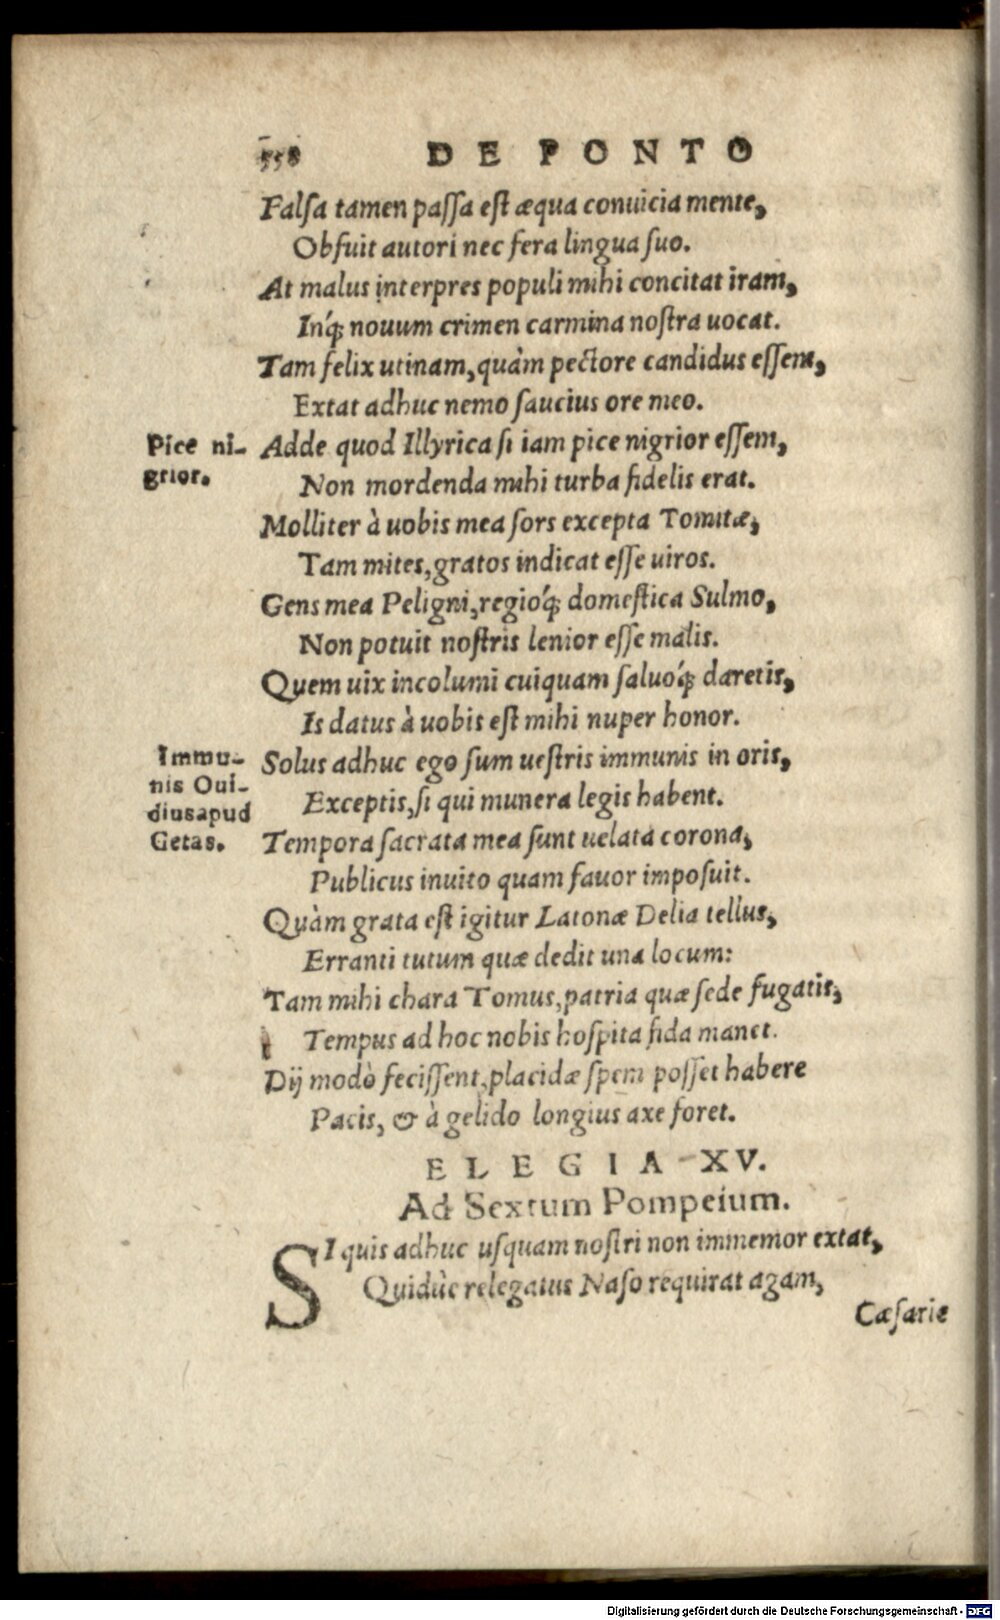 558 DE PONTO
Falsa tamen passa est æqua conuicia mente,
Obfuit autori nec fera lingua suo.
At malus interpres populi mihi concitat iram,
Inq́; nouum crimen carmina nostra uocat.
Tam felix utinam, quàm pectore candidus essem,
Extat adhuc nemo saucius ore meo.
Pice ni-
grior.
Adde quod Illyrica si iam pice nigrior essem,
Non mordenda mihi turba fidelis erat.
Molliter à uobis mea sors excepta Tomitæ,
Tam mites, gratos indicat esse uiros.
Gens mea Peligni, regioq́; domestica Sulmo,
Non potuit nostris lenior esse malis.
Quem uix incolumi cuiquam saluoq́; daretis,
Is datus à uobis est mihi nuper honor.
Immu-
nis Oui-
diusapud
Getas.
Solus adhuc ego sum uestris immunis in oris,
Exceptis, si qui munera legis habent.
Tempora sacrata mea sunt uelata corona,
Publicus inuito quam fauor imposuit.
Quàm grata est igitur Latonæ Delia tellus,
Erranti tutum quæ dedit una locum:
Tam mihi chara Tomus, patria quæ sede fugatis,
Tempus ad hoc nobis hospita fida manet.
Dij modò fecissent, placidæ spem posset habere
Pacis, & à gelido longius axe foret.
ELEGIA XV.
Ad Sextum Pompeium.
SI quis adhuc usquam nostri non immemor extat,
Quidùe relegatus Naso requirat agam,
Cæsarie
Digitalisierung gefördert durch die Deutsche Forschungsgemeinschaft - DFG